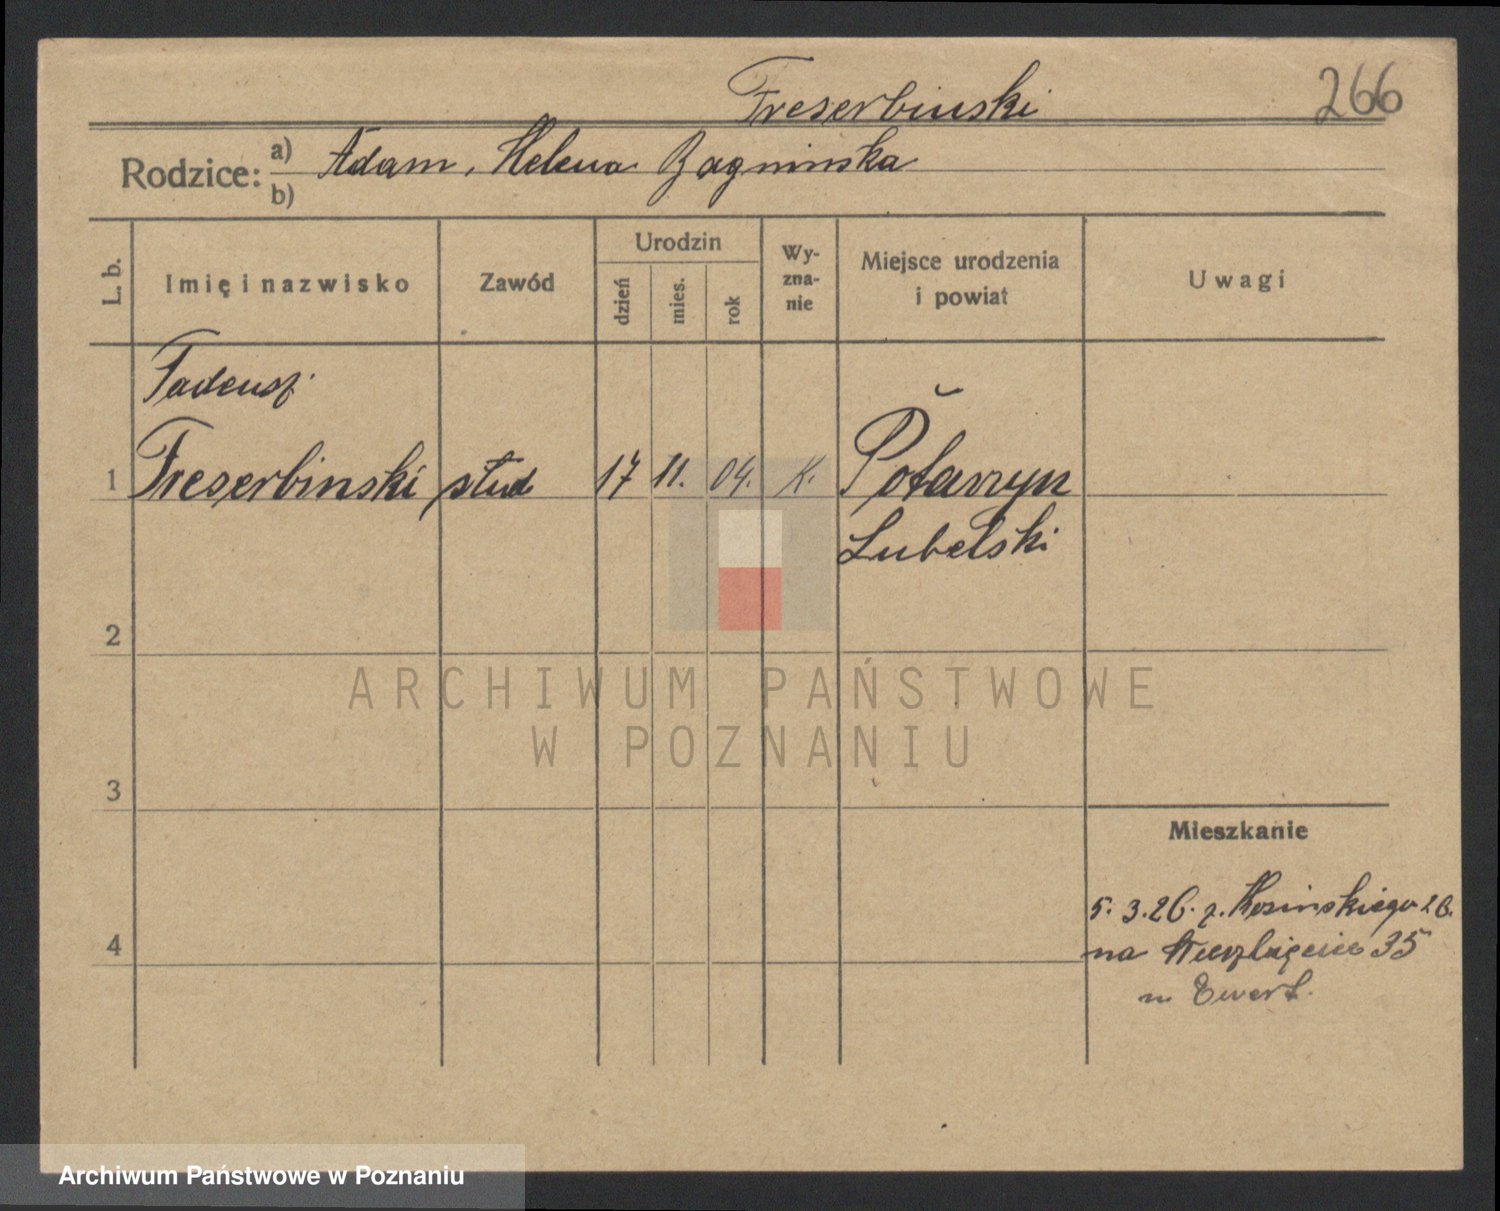 Treserbinski
266
Rodzice: a) Adam, Helena Bagninska
b)
L. b.
Imię i nazwisko
Zawód
Urodzin
dzień
mies.
rok
Wy-
zna-
nie
Miejsce urodzenia
i powiat
Uwagi
Tadeusz
1 Treserbinski stud 17 11. 04. K.
Lubelski
2
ARCHIWUM PAŃSTWOWE
W POZNANIU
3
Mieszkanie
5. 3. 26. z. Kosinskiego 26.
4
na 35
Ewert.
Archiwum Państwowe w Poznaniu